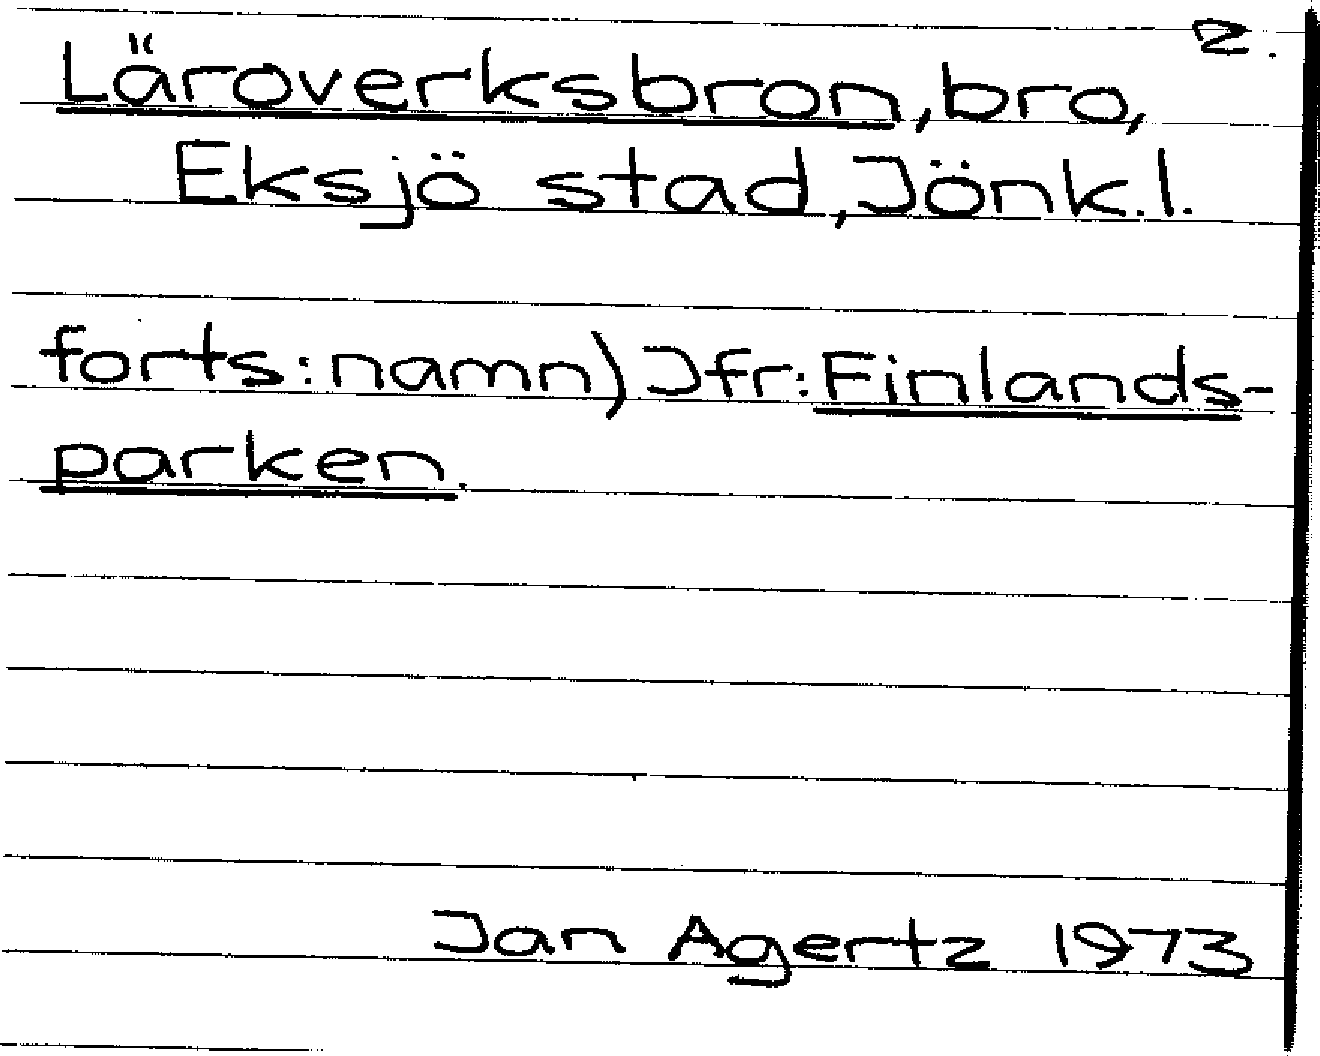 2.
Läroverksbron, bro,
Eksjö stad, Jönk.l.
forts: namn) Jfr: Finlands-
parken.
Jan Agertz 1973